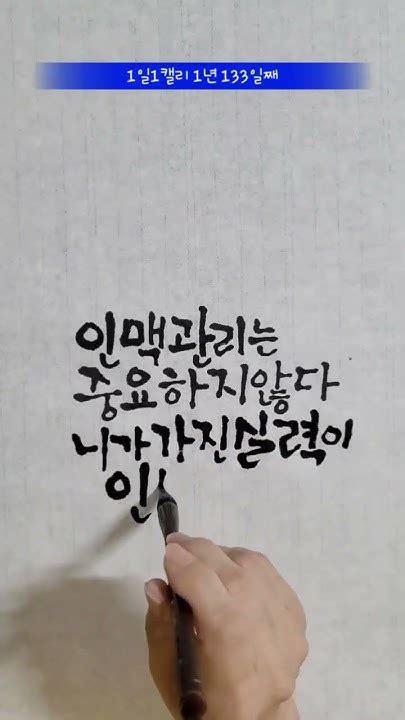 1일1캘리 1년 133일째
인맥관리는
중요하지않다
니가가진실력이
인